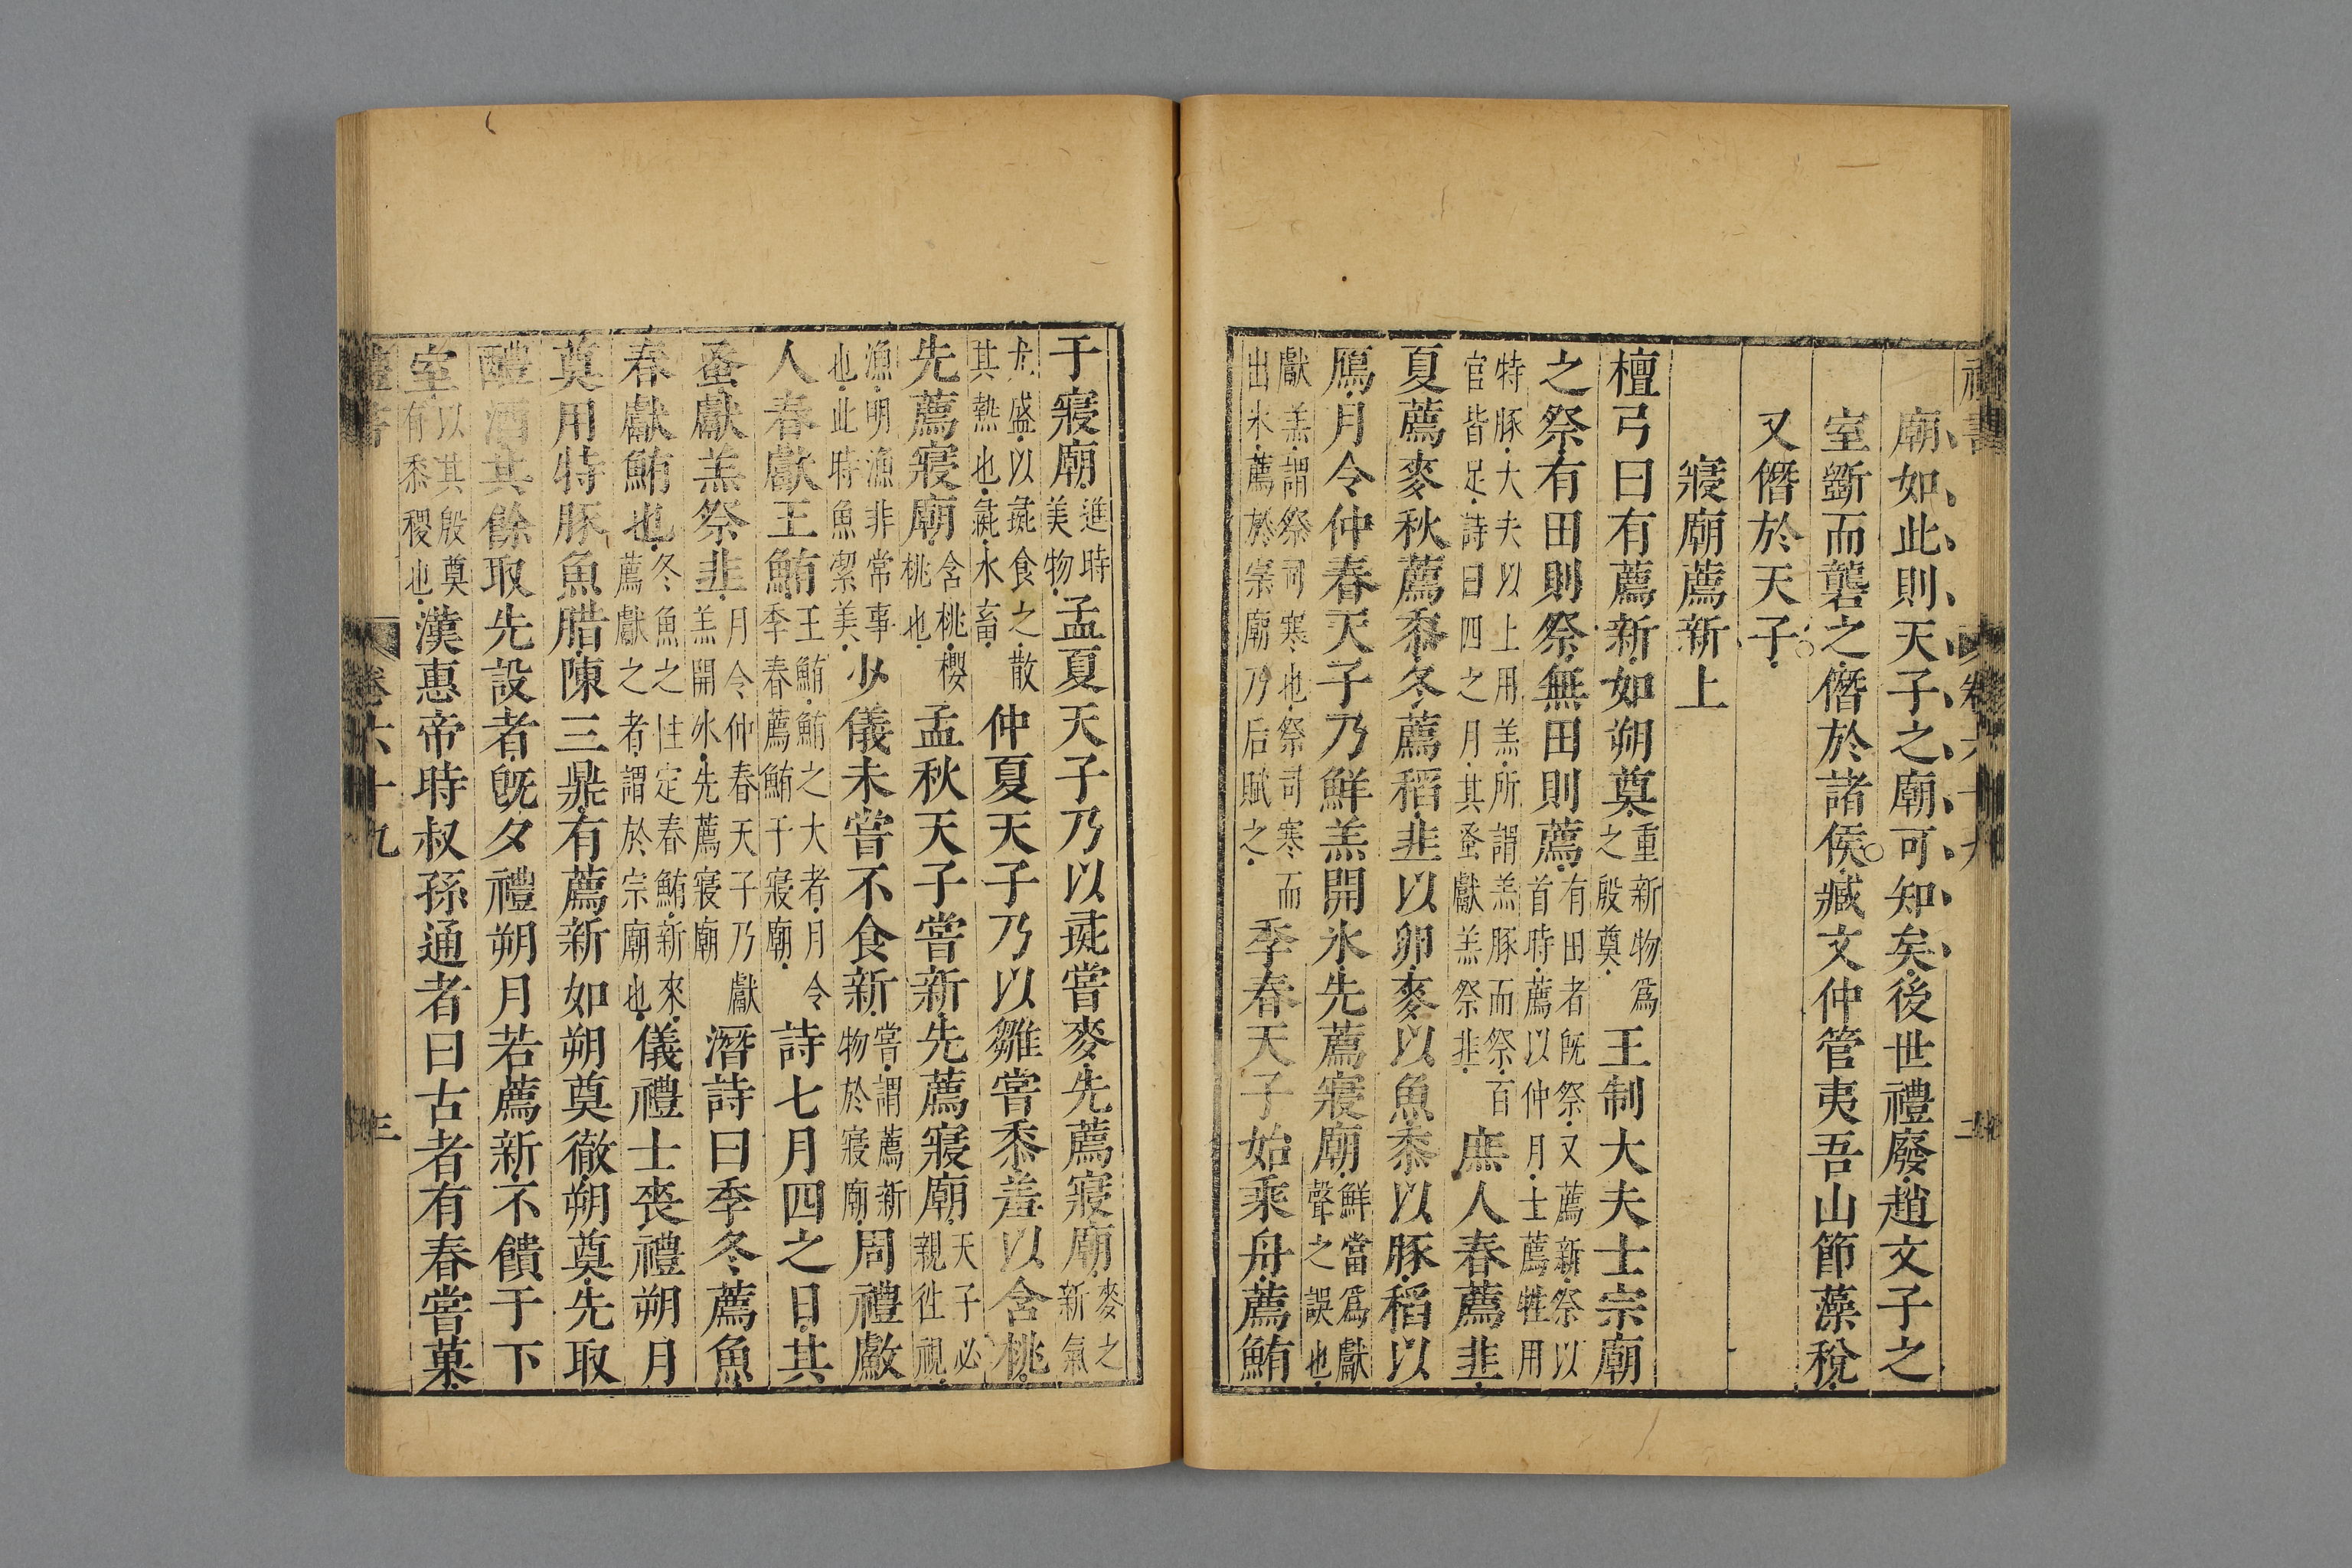 禮書 卷六十九 二
廟如此則天子之廟可知矣後世禮廢趙文子之
室斵而礱之僭於諸侯臧文仲管夷吾山節藻梲
又僭於天子
寢廟薦新上
檀弓曰有薦新如朔奠重新物爲之殷奠王制大夫士宗廟
之祭有田則祭無田則薦有田者旣祭又薦新祭以首時薦以仲月士薦牲用
特豚大夫以上用羔所謂羔豚而祭百官皆足詩曰四之月其蚤獻羔祭韭庶人春薦韭
夏薦麥秋薦黍冬薦稻韭以卵麥以魚黍以豚稻以
鴈月令仲春天子乃鮮羔開氷先薦寢廟鮮當爲獻聲之誤也
獻羔謂祭司寒也祭司寒而出氷薦於宗廟乃后賦之季春天子始乘舟薦鮪
于寢廟進時美物孟夏天子乃以彘嘗麥先薦寢廟麥之新氣
尤盛以彘食之散其熱也彘水畜仲夏天子乃以雛嘗黍羞以含桃
先薦寢廟含桃櫻桃也孟秋天子嘗新先薦寢廟天子必親徃視
漁明漁非常事也此時魚絜美少儀未嘗不食新嘗謂薦新物於寢廟周禮
人春獻王鮪王鮪鮪之大者月令季春薦鮪于寢廟詩七月四之日其
蚤獻羔祭韭月令仲春天子乃獻羔開氷先薦寢廟潛詩曰季冬薦魚
春獻鮪也冬魚之性定春鮪新來薦獻之者謂於宗廟也儀禮士喪禮朔月
奠用特豚魚腊陳三鼎有薦新如朔奠徹朔奠先取
醴酒其餘取先設者旣夕禮朔月若薦新不饋于下
室以其殷奠有黍稷也漢惠帝時叔孫通者曰古者有春嘗菓
禮書 卷六十九 三